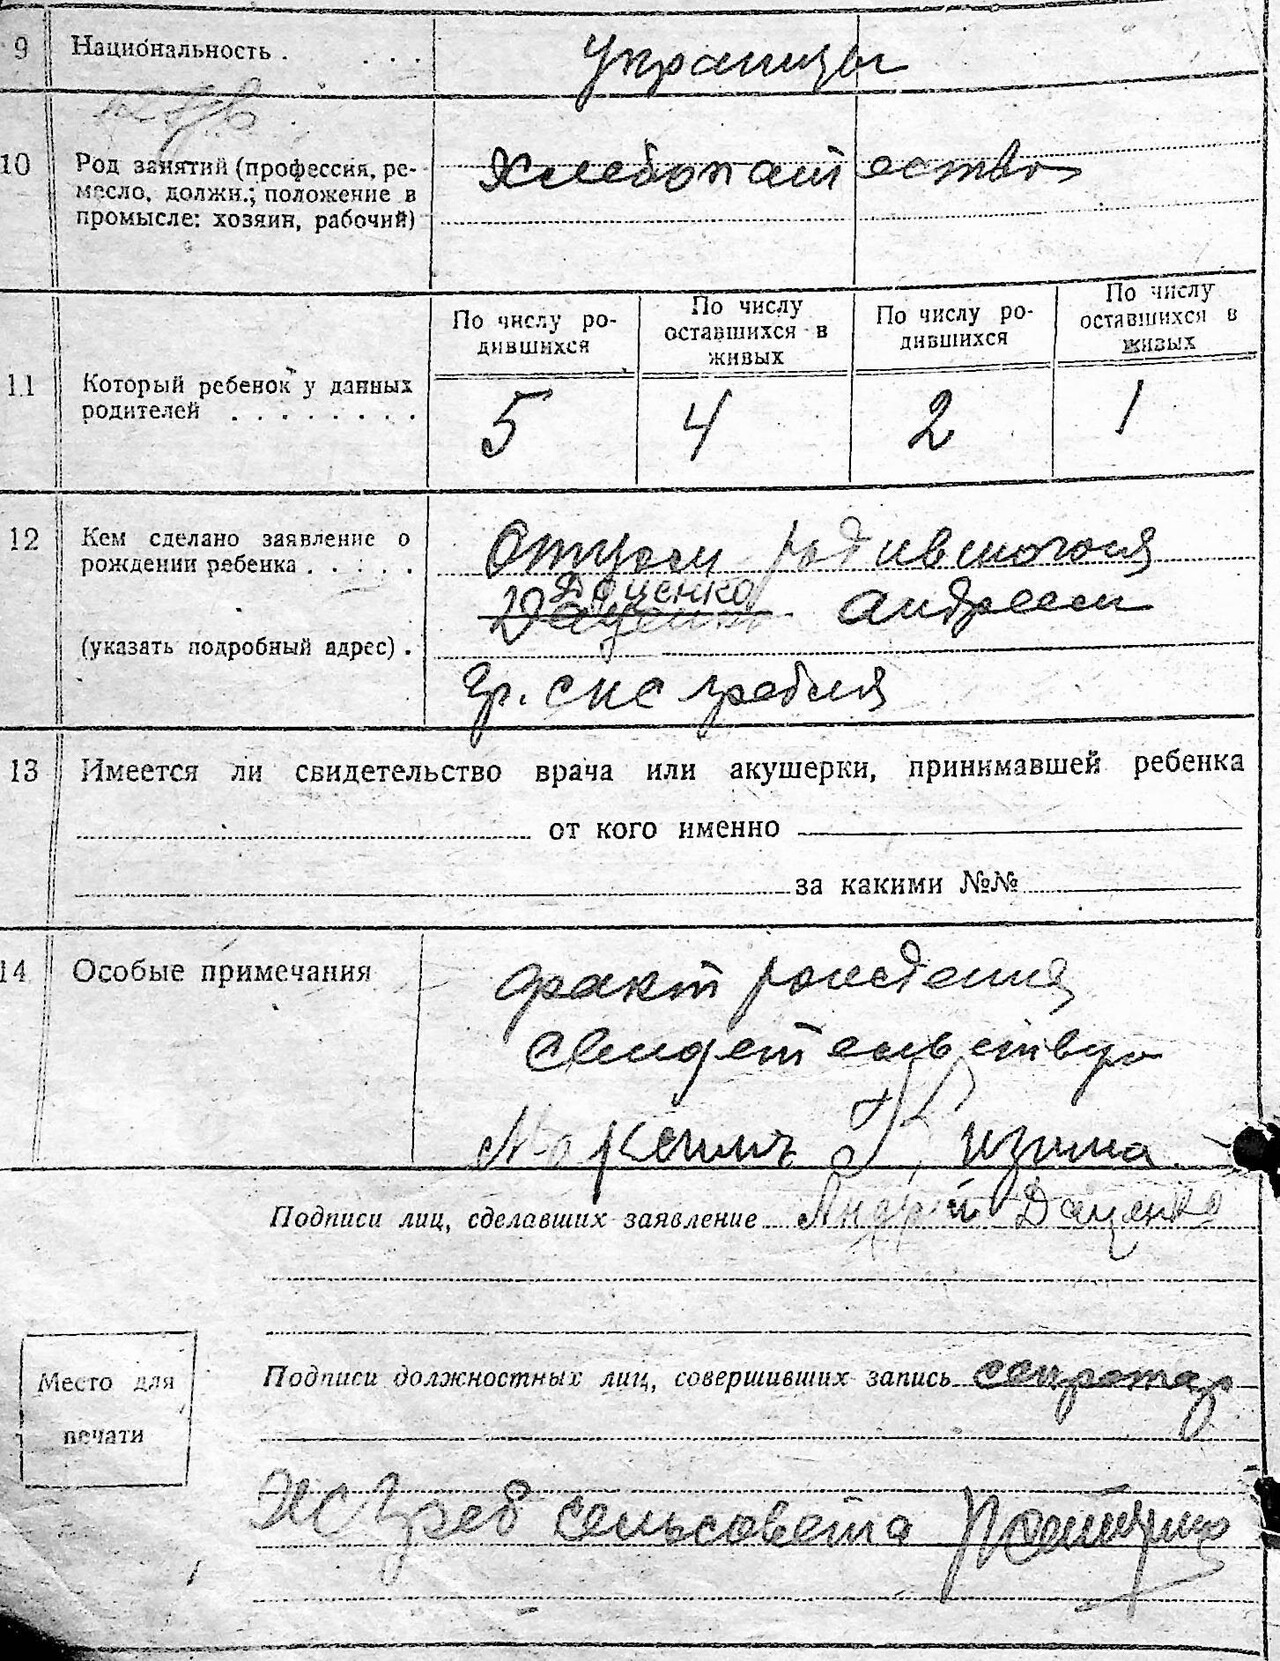 9 Национальность . . . . Украинцы
10 Род занятий (профессия, ре-
месло, должн.; положение в
промысле: хозяин, рабочий)
Хлебопашество
11 Который ребенок у данных
родителей . . . . . . . .
По числу ро-
дившихся
По числу
оставшихся в
живых
По числу ро-
дившихся
По числу
оставшихся в
живых
5 4 2 1
12 Кем сделано заявление о
рождении ребенка . . . . .
(указать подробный адрес) .
Отцом родившогося
Даценко
Даценко Андреем
гр. снс гребля
13 Имеется ли свидетельство врача или акушерки, принимавшей ребенка
от кого именно
за какими №№
14 Особые примечания
факт рождения
свидетельствую
Кизима.
Подписи лиц, сделавших заявление Андрій Даценко
Место для
печати
Подписи должностных лиц, совершивших запись секротар
НС Греб сельсовета